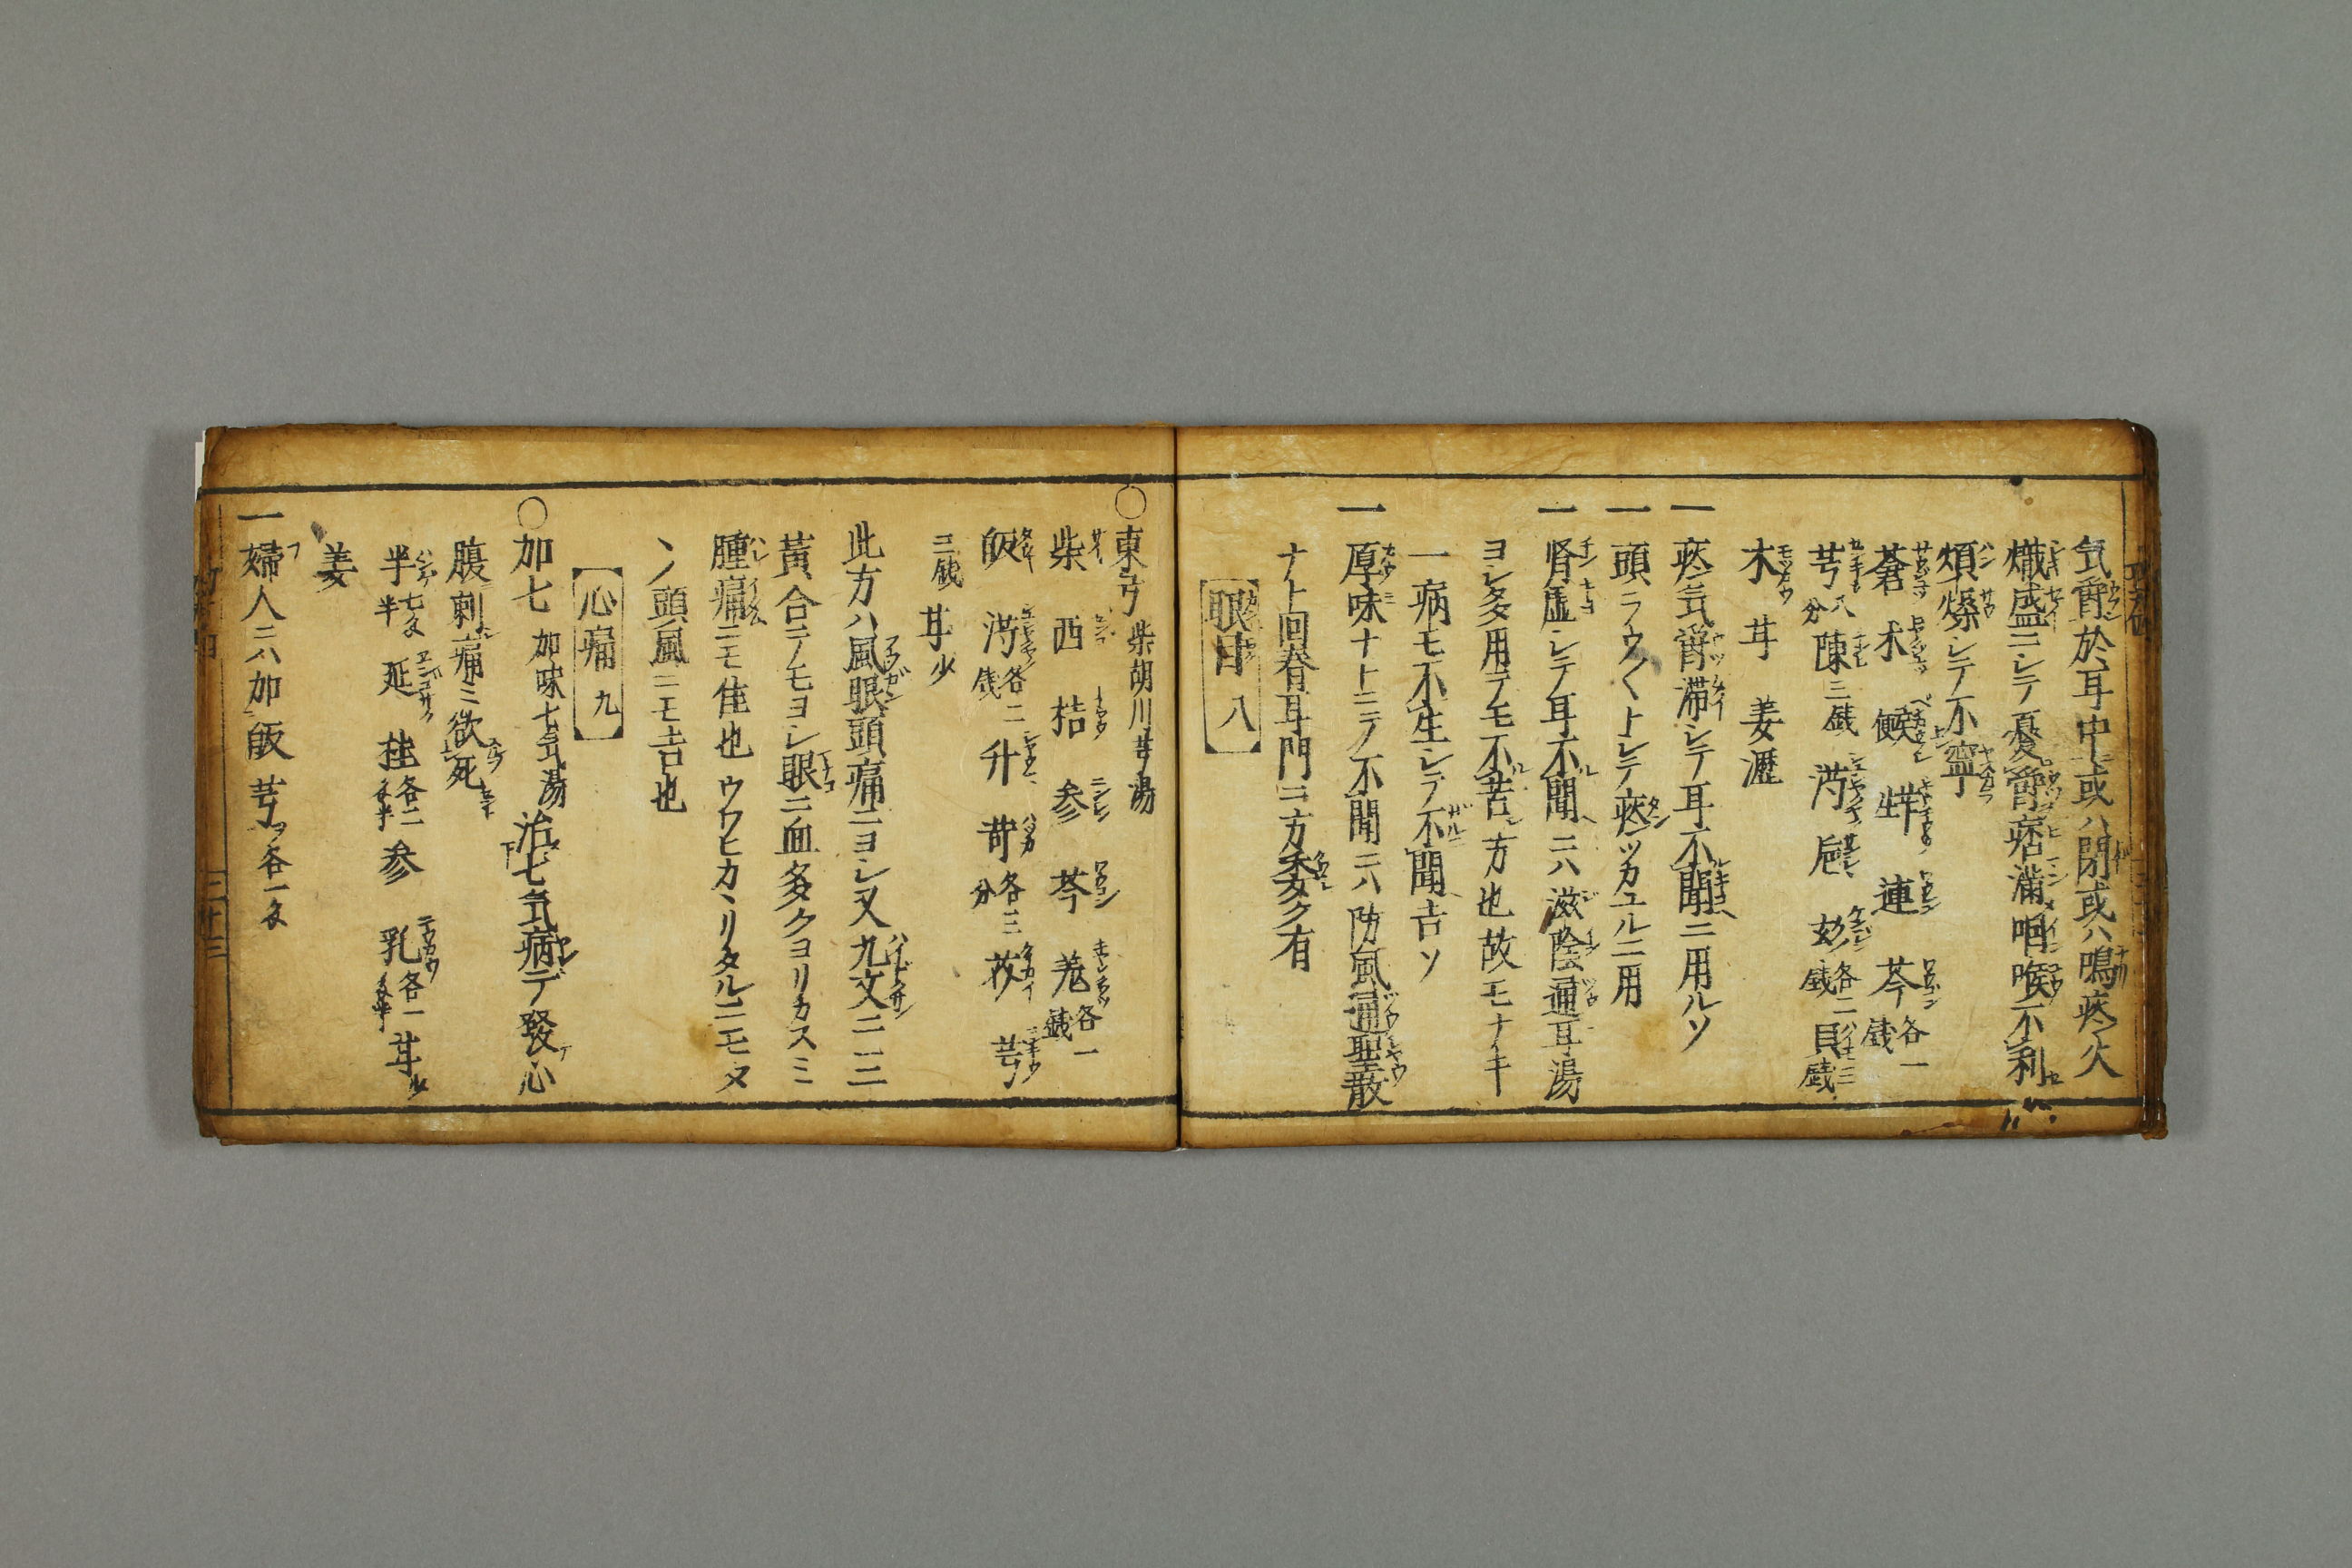 気欝於耳中或ハ閉或ハ鳴痰火
熾盛ニシテ憂欝痞満咽喉不利
煩燥シテ不寧
蒼 术 連 芩各一戔
芎八分 陳三戔 各二戔 貝三戔
木 甘 姜瀝
一痰気欝滞シテ耳不聞ニ用ルソ
一頭フラウ〱トシテ痰ツカユルニ用
一腎虚シテ耳不聞ニハ滋陰通耳湯
ヨシ多用テモ不苦方也故モナキ
一病モ不生シテ不聞吉ソ
一厚味ナトニテ不聞ニハ防風通聖散
ナト回春耳門ニ方委ク有
眼目 八
○東弓 柴胡川芎湯
柴 西 桔 参 芩 羗各一戔
各二戔 升 各三分 芎
三戔 甘少
此方ハ風眼頭痛ニヨシ又九文ニ三
黄合テノモヨシ眼ニ血多クヨリカスミ
腫痛ニモ佳也ウウヒカヽリタルニモヌ
ノ頭風ニモ吉也
心痛 九
○加七 加味七気湯 治七気病デ發心
腹刺痛ミ欲死
半 延 桂各二 参 乳各一 甘少
姜
一婦人ニハ加 芎ヲ各一
三十三